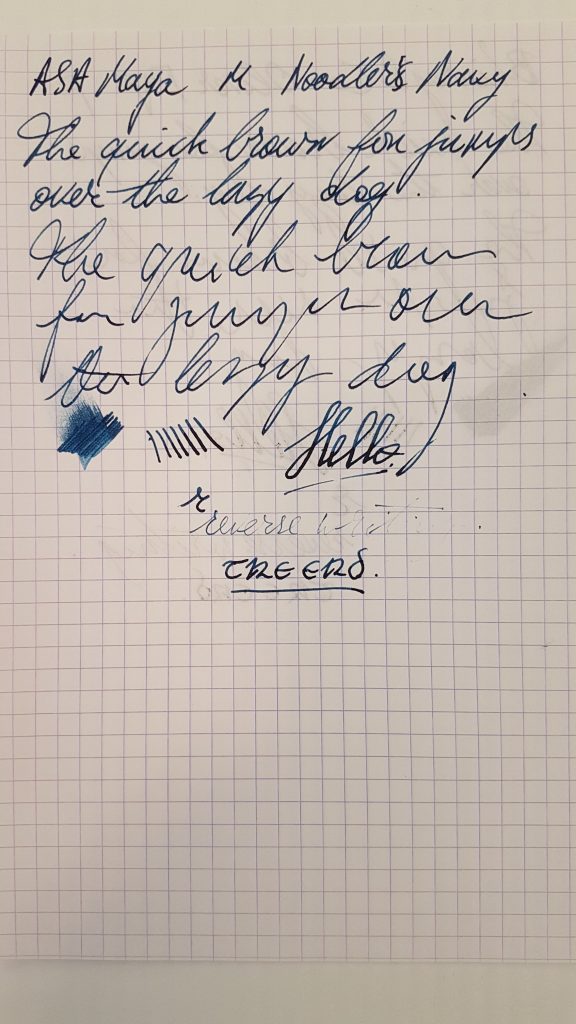 ASA Maya M Noodler's Navy
The quick brown fox jumps
over the lazy dog.
The quick brown
fox jumps over
the lazy dog
Hello.
r
reverse writ
THE END.